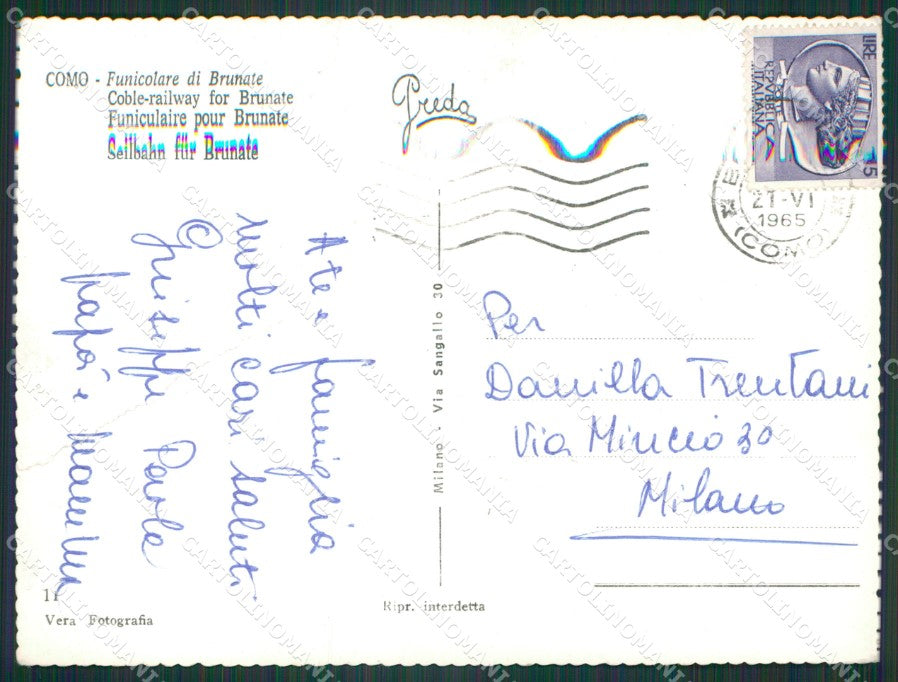 COMO - Funicolare di Brunate
Coble-railway for Brunate
Funiculaire pour Brunate
Seilbahn für Brunate
Preda
LIRE 15
REPVBBLICA
ITALIANA
21-VI
1965
(COMO)
A te e famiglia
molti cari saluti
Giuseppe Paola
papà e mamma
Milano - Via Sangallo 30
Per
Danilla Trentani
Via Mincio 30
Milano
11
Vera Fotografia
Ripr. interdetta
CARTOLINOMANIA